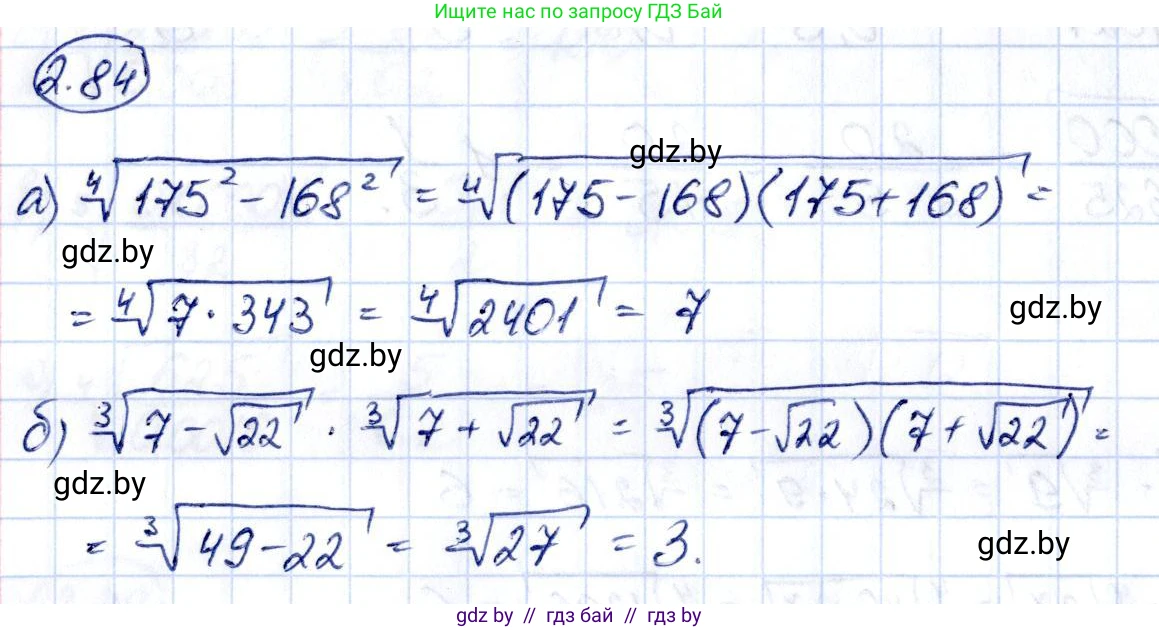 Ищите нас по запросу ГДЗ Бай
2.84
а) ⁴√(175² − 168²) = ⁴√((175 − 168)(175 + 168)) =
gdz.by
gdz.by
= ⁴√(7 · 343) = ⁴√2401 = 7
gdz.by
gdz.by
б) ³√(7 − √22) · ³√(7 + √22) = ³√((7 − √22)(7 + √22)) =
gdz.by
= ³√(49 − 22) = ³√27 = 3.
gdz.by
gdz by // гдз бай // гдз by